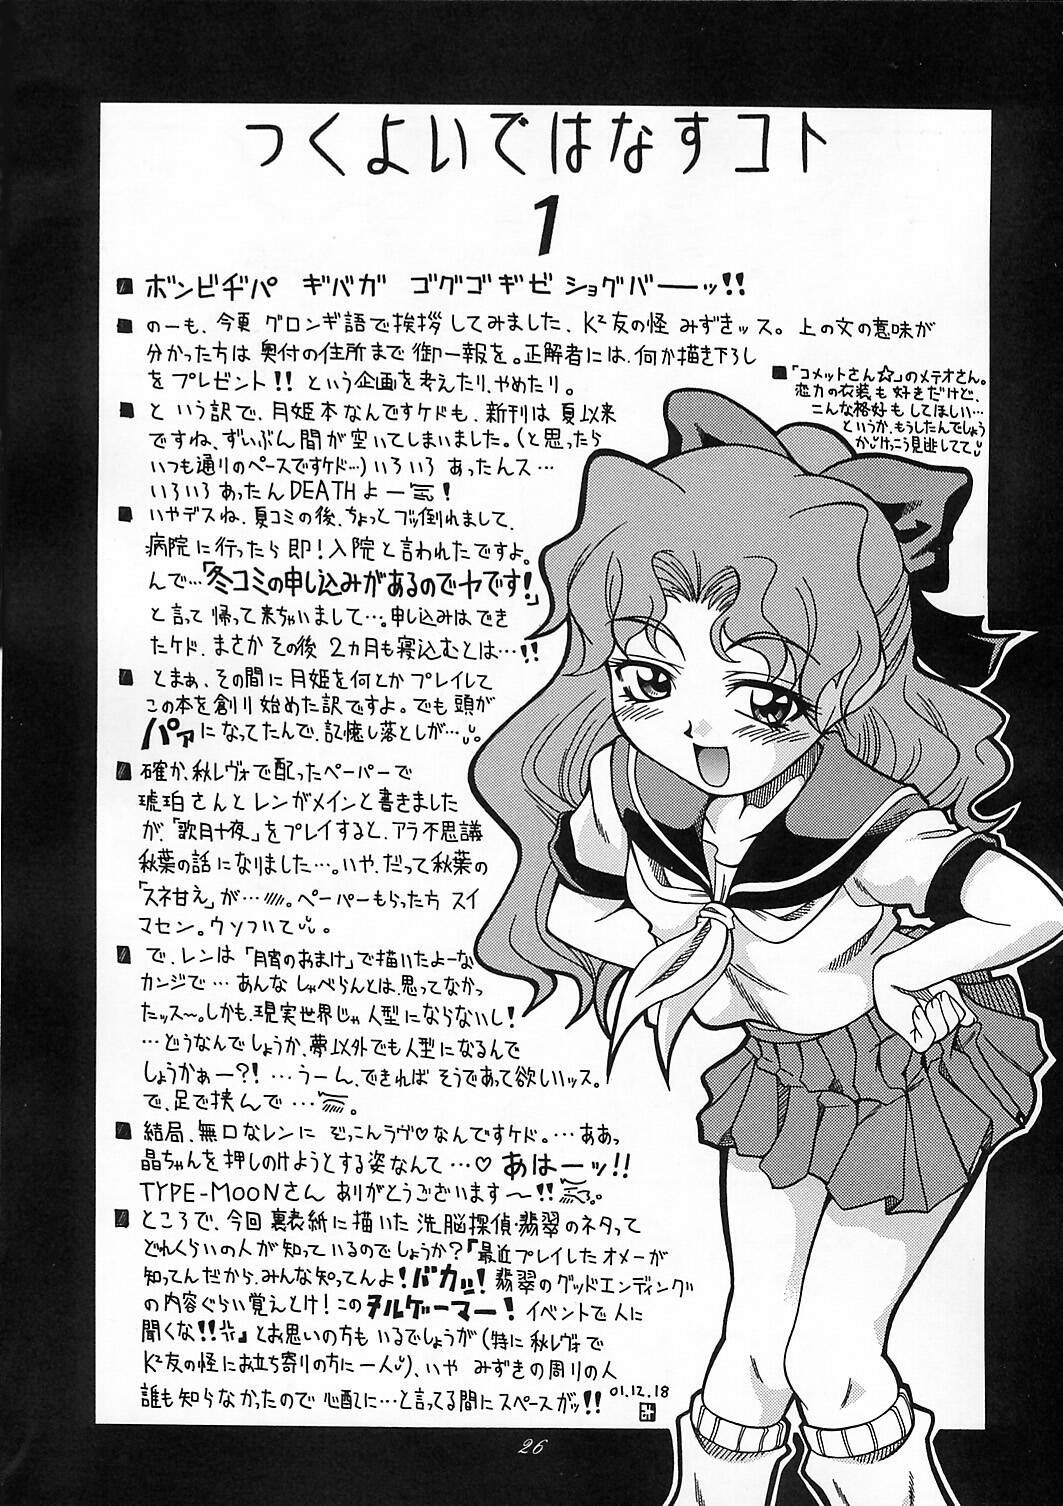 つくよいではなすコト
1
■ボンビヂパ ギバガ ゴグゴギゼ ショグバーッ!!
■のーも、今更 グロンギ語で挨拶してみました、K²友の怪 みずきッス。上の文の意味が
分かった方は 奥付の住所まで 御一報を。正解者には、何か描き下ろし
をプレゼント!! という企画を考えたり、やめたり。
■「コメットさん☆」のメテオさん。
恋力の衣装も好きだけど、
こんな格好もしてほしい…
というか、もうしたんでしょう
か、けっこう見逃してて
■という訳で、月姫本なんですケドも、新刊は夏以来
ですね、ずいぶん間が空いてしまいました。(と思ったら
いつも通りのペースですケド…)いろいろ あったんス…
いろいろあったんDEATHよー!
■いやデスね、夏コミの後、ちょっとブッ倒れまして、
病院に行ったら即!入院と言われたですよ。
んで…「冬コミの申し込みがあるのでヤです!」
と言って帰って来ちゃいまして…。申し込みはでき
たケド、まさかその後 2ヵ月も寝込むとは…!!
■とまぁ、その間に月姫を何とかプレイして
この本を創り始めた訳ですよ。でも頭が
パァになってたんで、記憶し落としが…。
■確か、秋レヴォで配ったペーパーで
琥珀さんとレンがメインと書きました
が、「歌月十夜」をプレイすると、アラ不思議
秋葉の話になりました…。いや、だって秋葉の
「スネ甘え」が…。ペーパーもらった方 スイ
マセン。ウソついて。
■で、レンは「月宵のおまけ」で描いたよーな
カンジで… あんなしゃべらんとは、思ってなかっ
たッス〜。しかも、現実世界じゃ人型にならないし!
…どうなんでしょうか、夢以外でも人型になるんで
しょうかぁー?! …うーん、できれば そうであって欲しいッス。
で、足で挟んで…。
■結局、無口なレンに ぞっこんラヴ♡なんですケド。…ああっ
晶ちゃんを押しのけようとする姿なんて…♡ あはーッ!!
TYPE-MOONさん ありがとうございます〜!!
■ところで、今回 裏表紙に描いた 洗脳探偵・翡翠のネタって
どれくらいの人が知っているのでしょうか?『最近プレイしたオメーが
知ってんだから、みんな知ってんよ!バカッ! 翡翠のグッドエンディング
の内容ぐらい覚えとけ!この ヌルゲーマー! イベントで人に
聞くな!!』とお思いの方も いるでしょうが(特に 秋レヴォで
K²友の怪にお立ち寄りの方に一人)、いや みずきの周りの人
誰も知らなかったので 心配に…と言ってる間にスペースがッ!! 01.12.18
み
26